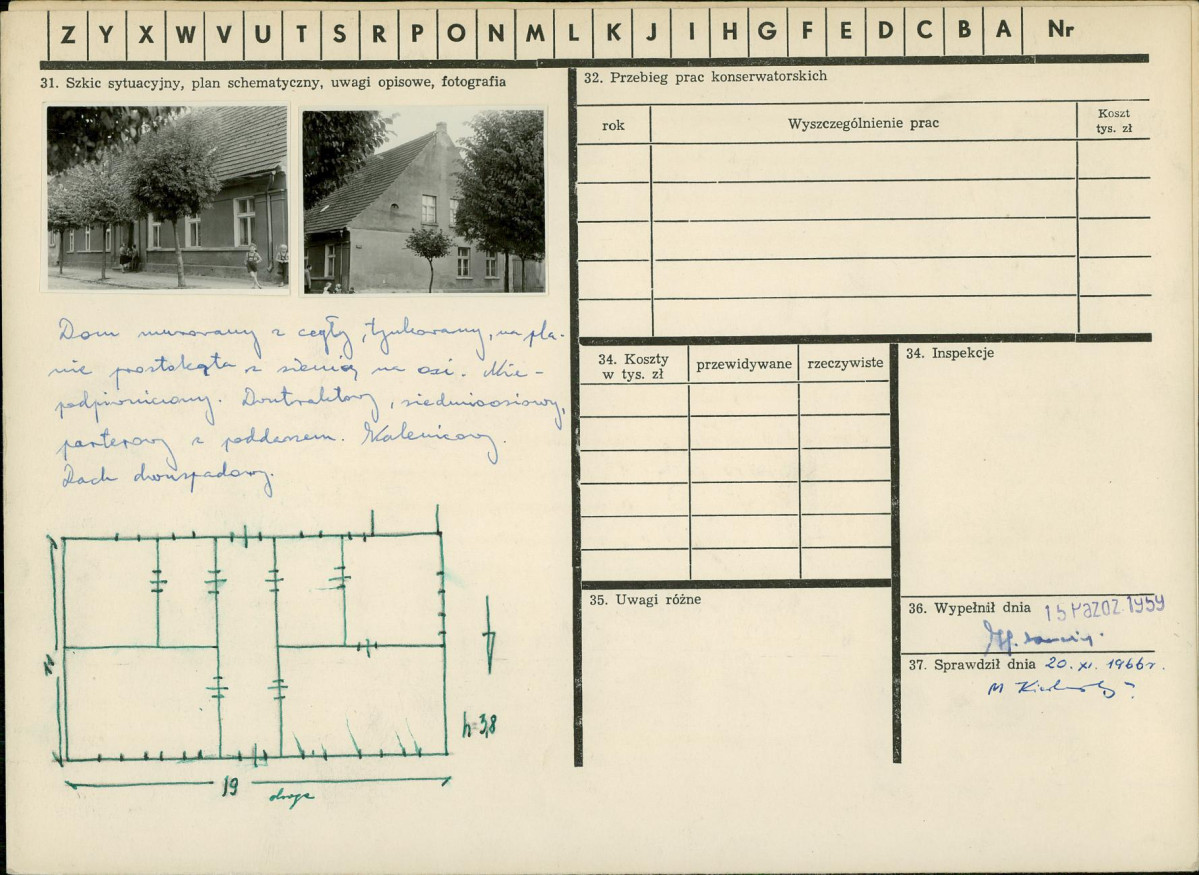 Z Y X W V U T S R P O N M L K J I H G F E D C B A Nr
31. Szkic sytuacyjny, plan schematyczny, uwagi opisowe, fotografia
Dom murowany z cegły, tynkowany, na pla-
nie prostokąta z sienią na osi. Nie-
podpiwniczony. Dwutraktowy, siedmioosiowy,
parterowy z poddaszem. Kalenicowy.
Dach dwuspadowy.
11
h=3,8
19
droga
32. Przebieg prac konserwatorskich
rok Wyszczególnienie prac Koszt
tys. zł
34. Koszty
w tys. zł przewidywane rzeczywiste
34. Inspekcje
35. Uwagi różne
36. Wypełnił dnia 15 PAZDZ. 1959
37. Sprawdził dnia 20. XI. 1966 r.
M